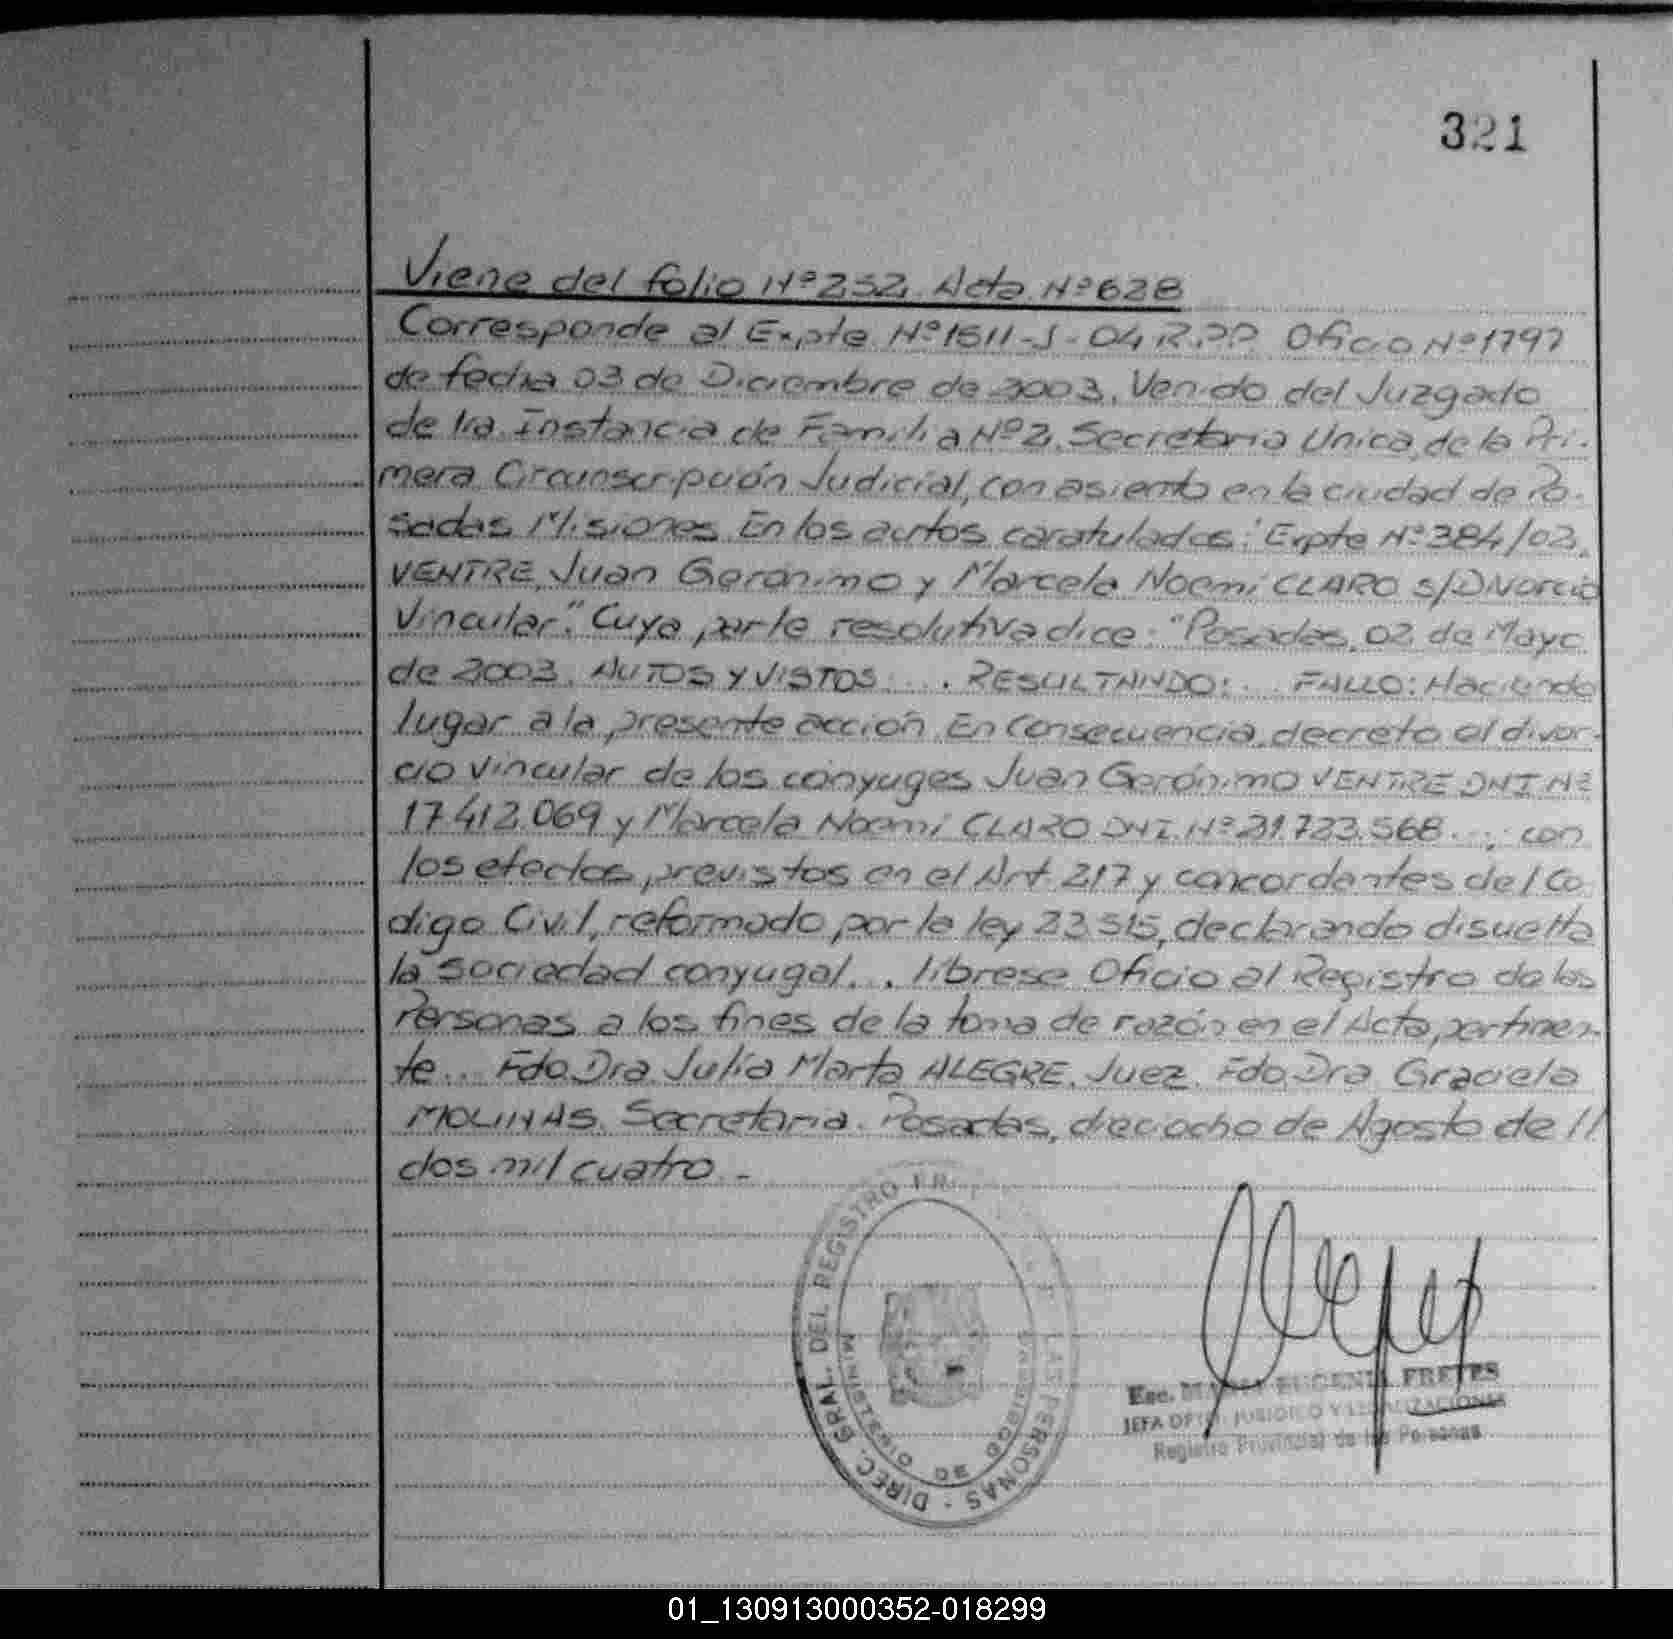 321
Viene del folio Nº 252. Acta Nº 628
Corresponde al Expte Nº 1511-J-04 R.P.P. Oficio Nº 1797
de fecha 03 de Diciembre de 2003. Venido del Juzgado
de 1ra. Instancia de Familia Nº 2, Secretaria Unica, de la Pri-
mera Circunscripción Judicial, con asiento en la ciudad de Po-
sadas Misiones. En los autos caratulados: "Expte Nº 384/02.
VENTRE, Juan Gerónimo y Marcela Noemi CLARO s/Divorcio
Vincular". Cuya parte resolutiva dice: "Posadas, 02 de Mayo
de 2003. AUTOS Y VISTOS: ... RESULTANDO: ... FALLO: Haciendo
lugar a la presente acción. En Consecuencia, decreto el divor-
cio vincular de los cónyuges Juan Gerónimo VENTRE DNI Nº
17.412.069 y Marcela Noemi CLARO DNI. Nº 21.723.568 ...; con
los efectos previstos en el Art. 217 y concordantes del Co
digo Civil, reformado por la ley 23.515, declarando disuelta
la sociedad conyugal... librese Oficio al Registro de las
Personas a los fines de la toma de razón en el Acta pertinen-
te... Fdo. Dra. Julia Marta ALEGRE. Juez. Fdo. Dra. Graciela
MOLINAS. Secretaria. Posadas, dieciocho de Agosto de //
dos mil cuatro.-
DIREC. GRAL. DEL REGISTRO PR. LAS PERSONAS
MINISTERIO DE GOBIERNO
Esc. MARIA EUGENIA FRETES
JEFA DPTO. JURIDICO Y LEGALIZACIONES
Registro Provincial de las Personas
01_130913000352-018299